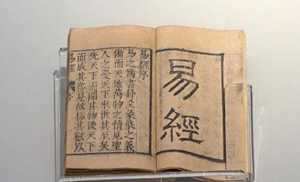 易經
易經序
易之為書卦爻彖象之義
備而天地萬物之情見聖
人之憂天下來世其至矣
先天下而開其物後天下
而成其務是故極其數以